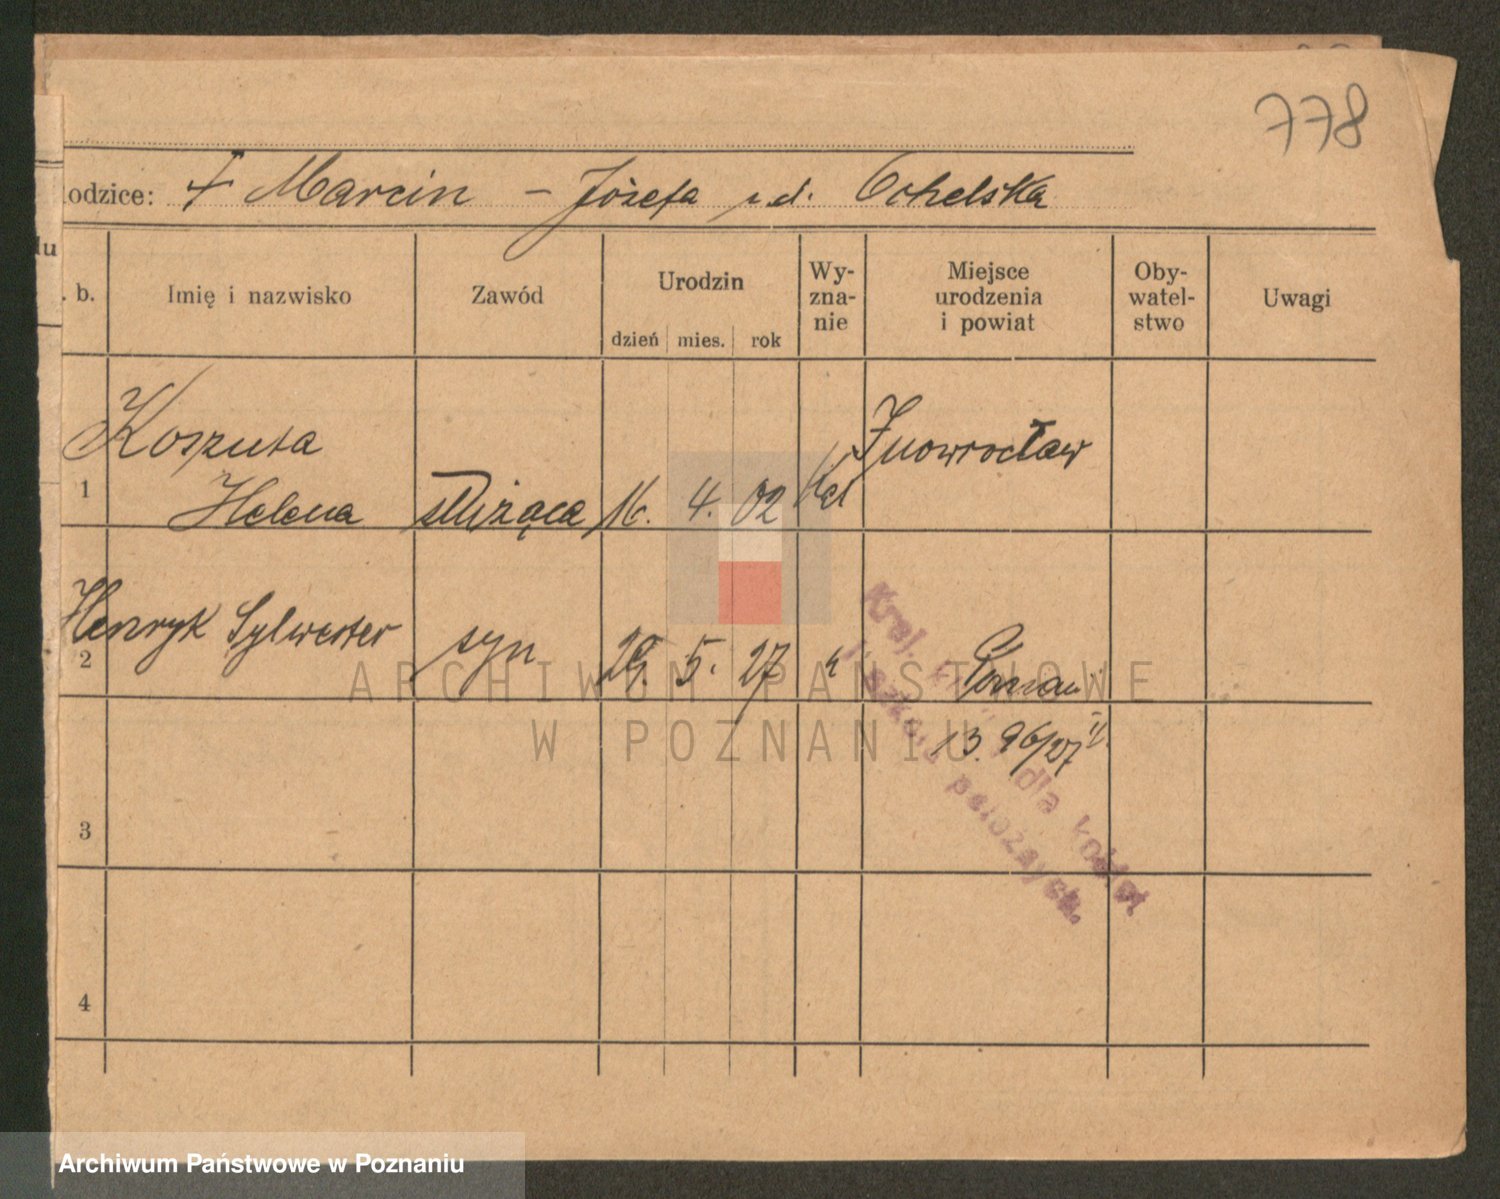 778
odzice: † Marcin - Józefa z d. Ochelska
du
. b. Imię i nazwisko Zawód Urodzin dzień mies. rok Wy-zna-nie Miejsce urodzenia i powiat Oby-watel-stwo Uwagi
Koszuta
1 Helena służąca 16. 4. 02 kat Inowrocław
2 Henryk Sylwester syn 29. 5. 27 k Poznań
13. 96/27
Kraj. dla kobiet
położnych.
3
4
ARCHIWUM PAŃSTWOWE
W POZNANIU
Archiwum Państwowe w Poznaniu